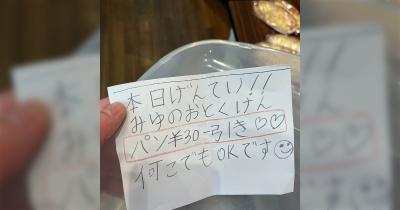 本日げんてい!!
みゆのおとくけん
パン¥30-弓き♡♡
何こでもOKです☺